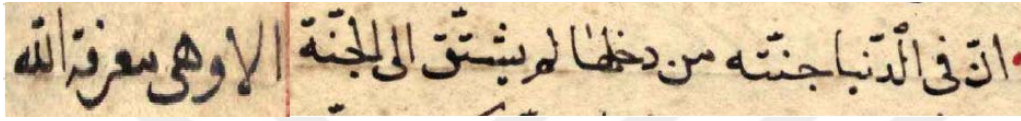 انّ فى الّدنيا جنّته من دخلها لم يشتق الى الجنّة الا وهى معرفة الله